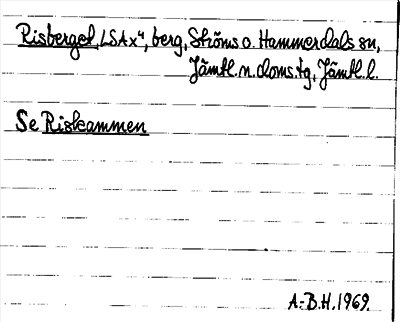 Risberget, LSA x⁴, berg, Ströms o. Hammerdals sn,
Jämtl. n. doms. tg, Jämtl. l.
Se Riskammen
A.-B.H. 1969.